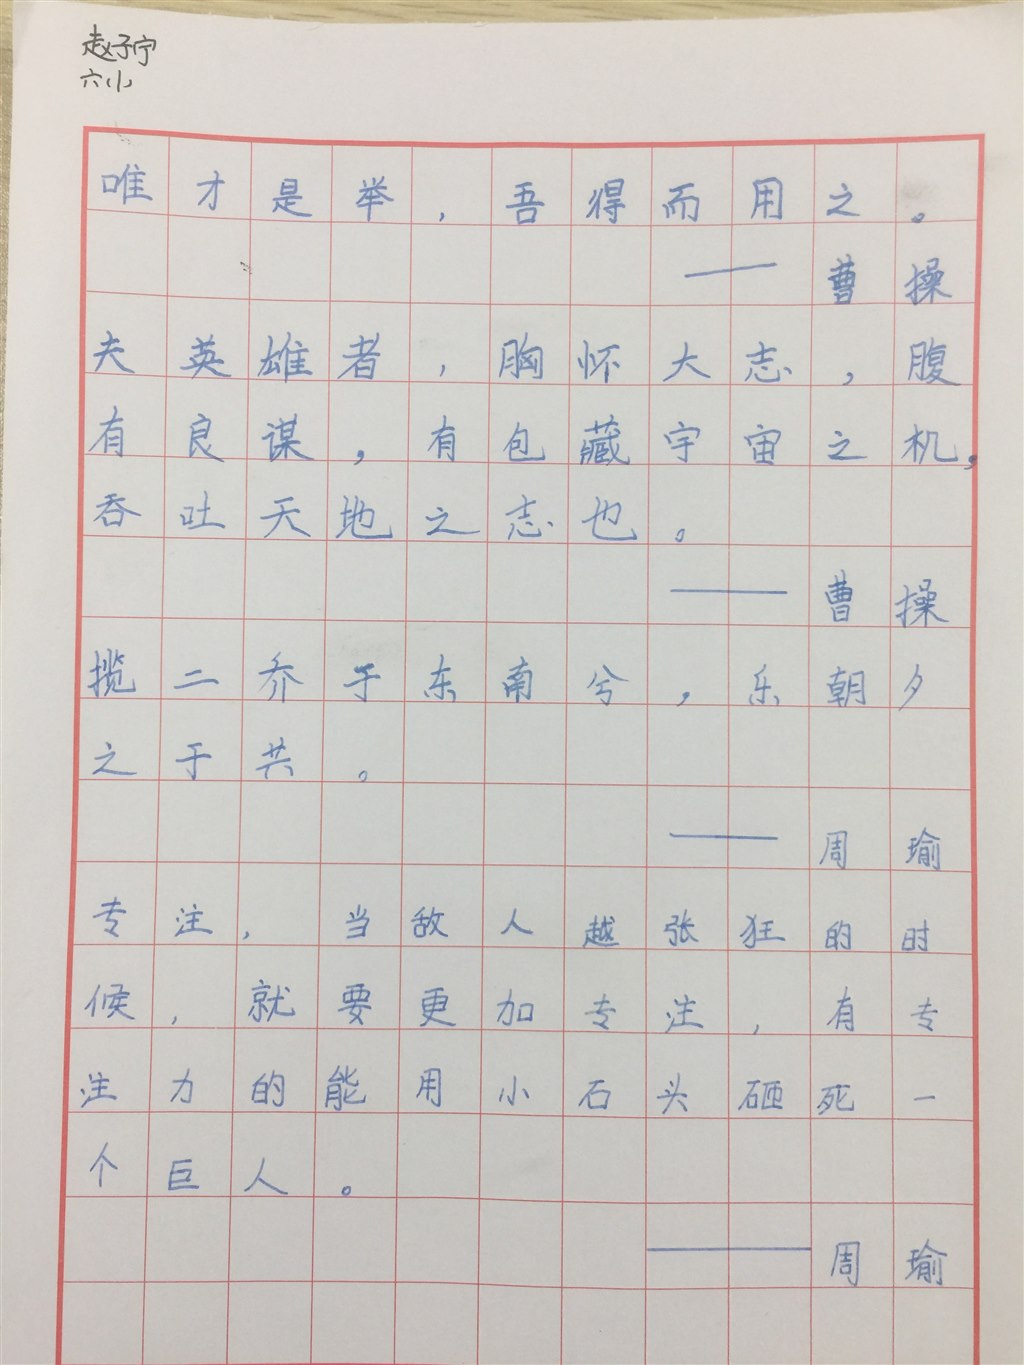 赵子宁
六小
唯才是举，吾得而用之。
——曹操
夫英雄者，胸怀大志，腹
有良谋，有包藏宇宙之机，
吞吐天地之志也。
——曹操
揽二乔于东南兮，乐朝夕
之于共。
——周瑜
专注，当敌人越张狂的时
候，就要更加专注，有专
注力的能用小石头砸死一
个巨人。
——周瑜